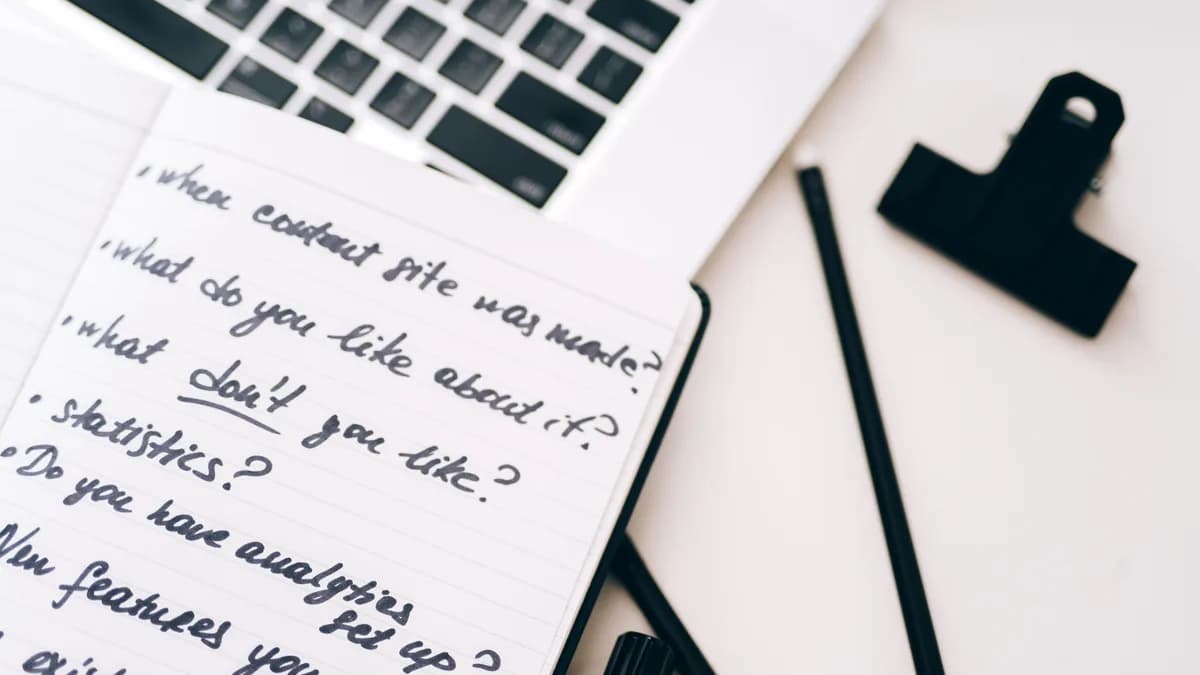 • when contant site was made?
• what do you like about it?
• what don't you like?
• statistics?
• Do you have analytics
set up?
New features you
exis